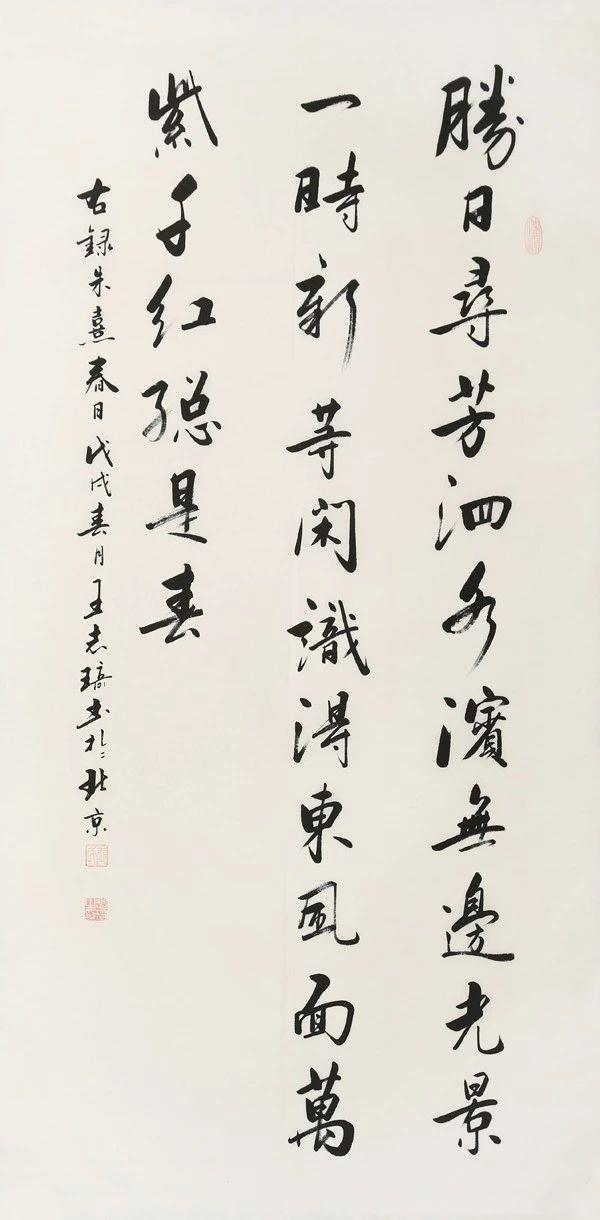 勝日尋芳泗水濱無邊光景
一時新等閑識得東風面萬
紫千红總是春
古録朱熹春日戊戌春月王志琦书於北京